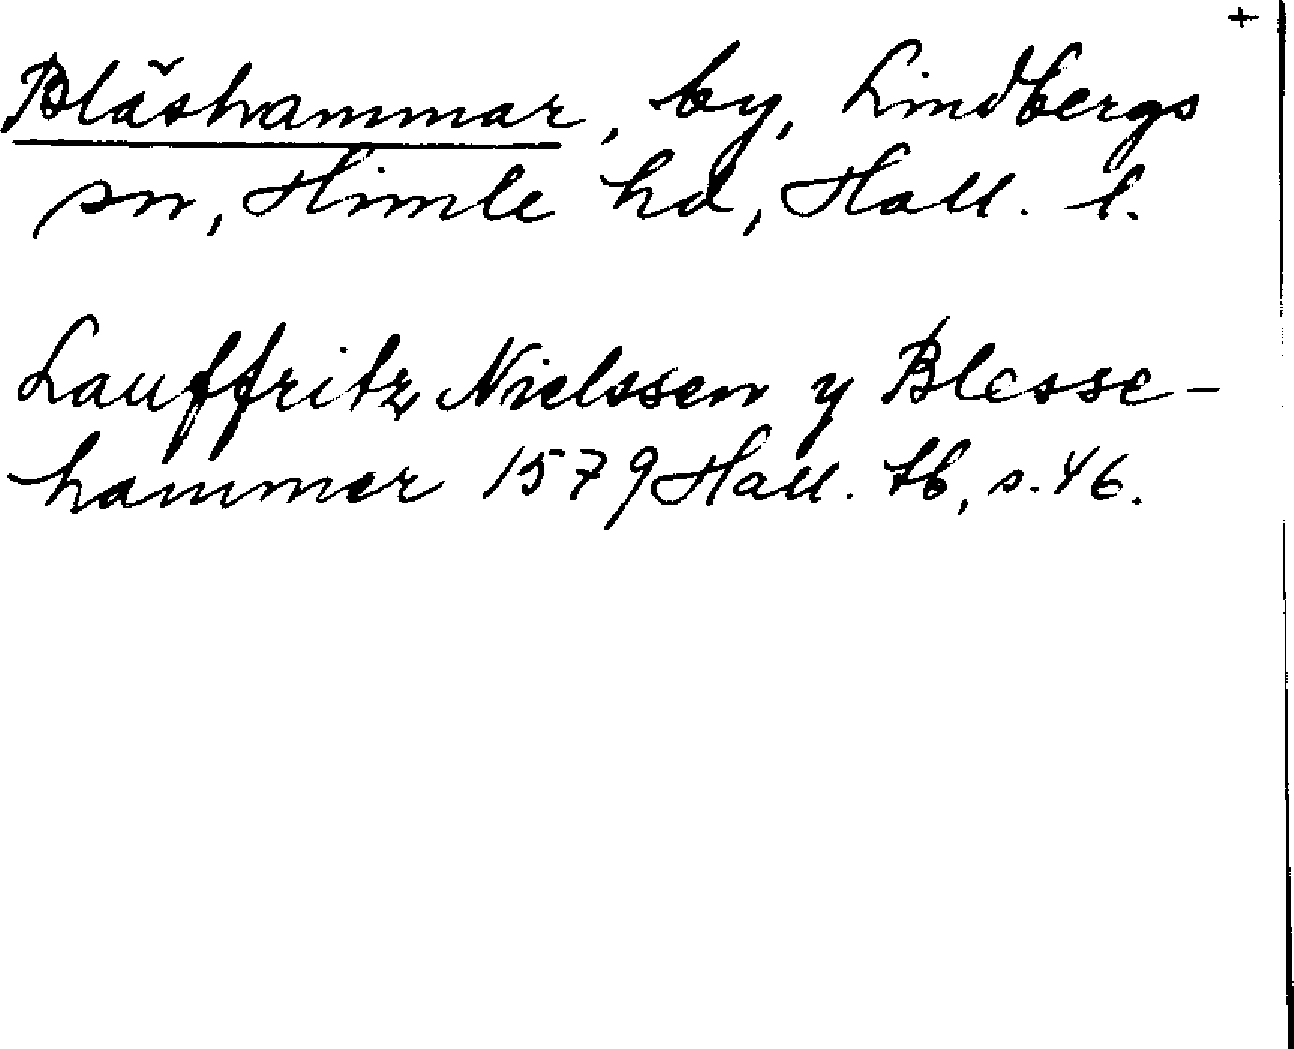 +
Bläshammar, by, Lindbergs
sn, Himle hd, Hall. l.
Lauffritz Nielssen y Blesse-
hammer 1579 Hall. tb, s. 46.